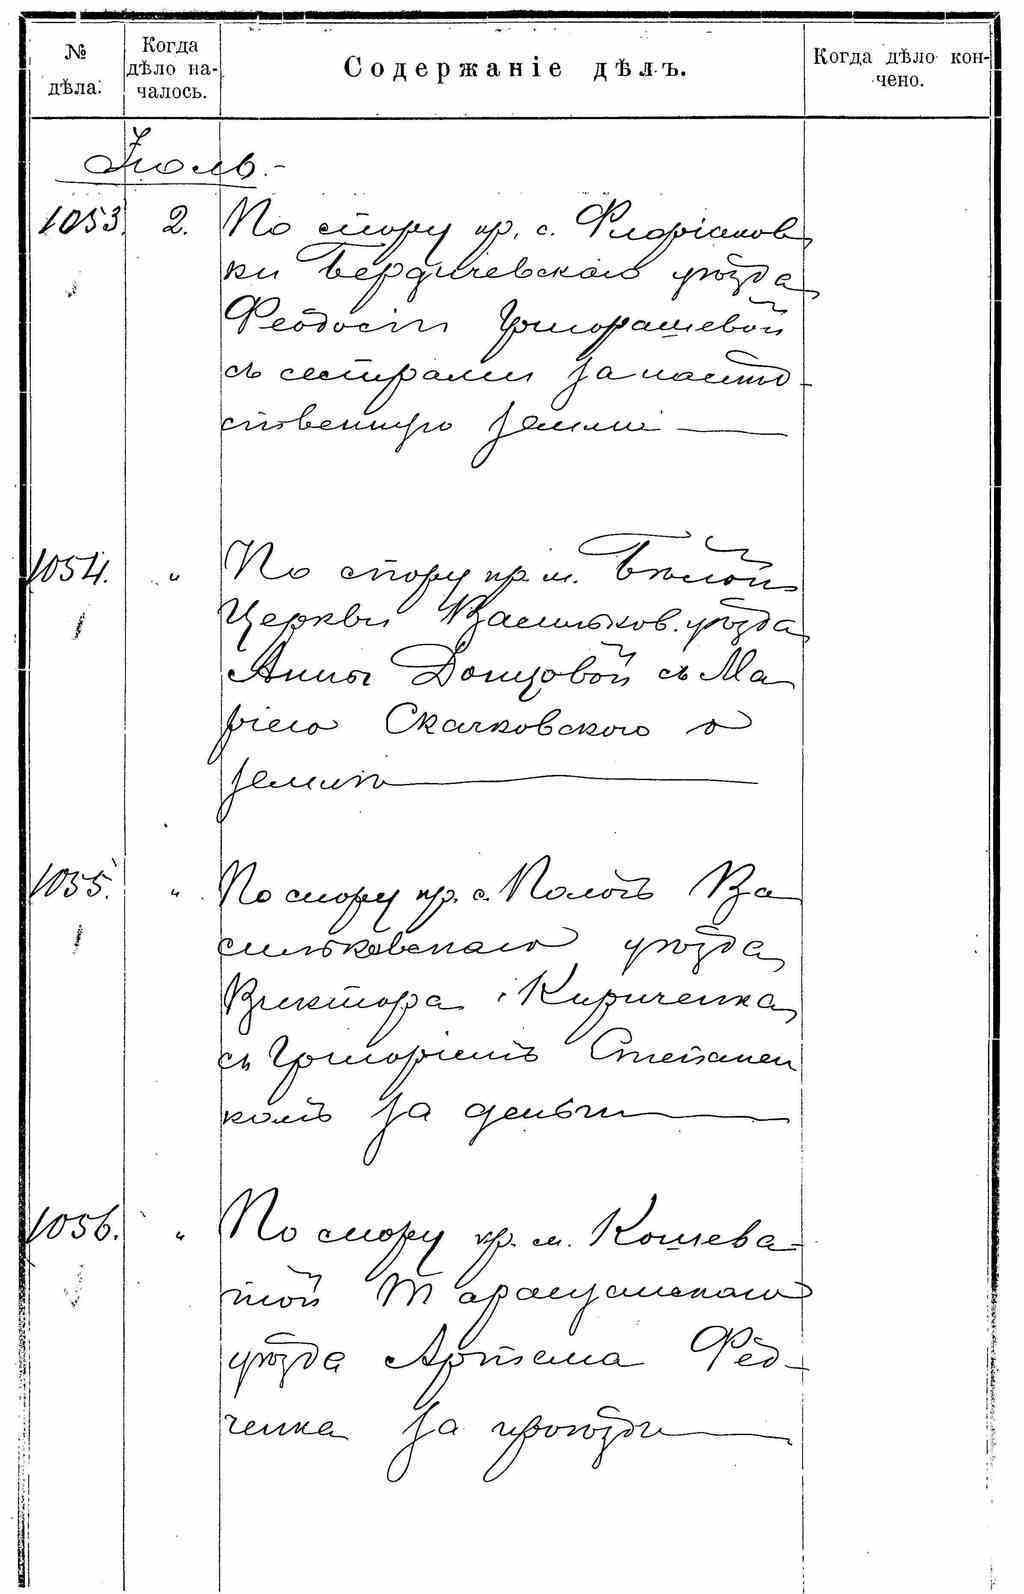 № дѣла.
Когда дѣло на-чалось.
Содержаніе дѣлъ.
Когда дѣло кон-чено.
Іюль.-
1053. 2. По спору кр. с. Флоріанов
ки Бердичевскаго уѣзда
Феодосіи Григорашевой
съ сестрами за наслѣд-
ственную землю —
1054. „ По спору кр. м. Бѣлой
Церкви Васильков. уѣзда
Анны Донцовой съ Ма
ріею Скачковского о
землѣ —
1055. „ По спору кр. с. Пологъ Ва
сильковскаго уѣзда
Виктора Кириченка
съ Григоріемъ Степанен
комъ за деньги —
1056. „ По спору кр. м. Кошева-
той Таращанскаго
уѣзда Артема Фед-
ченка за проѣзды —